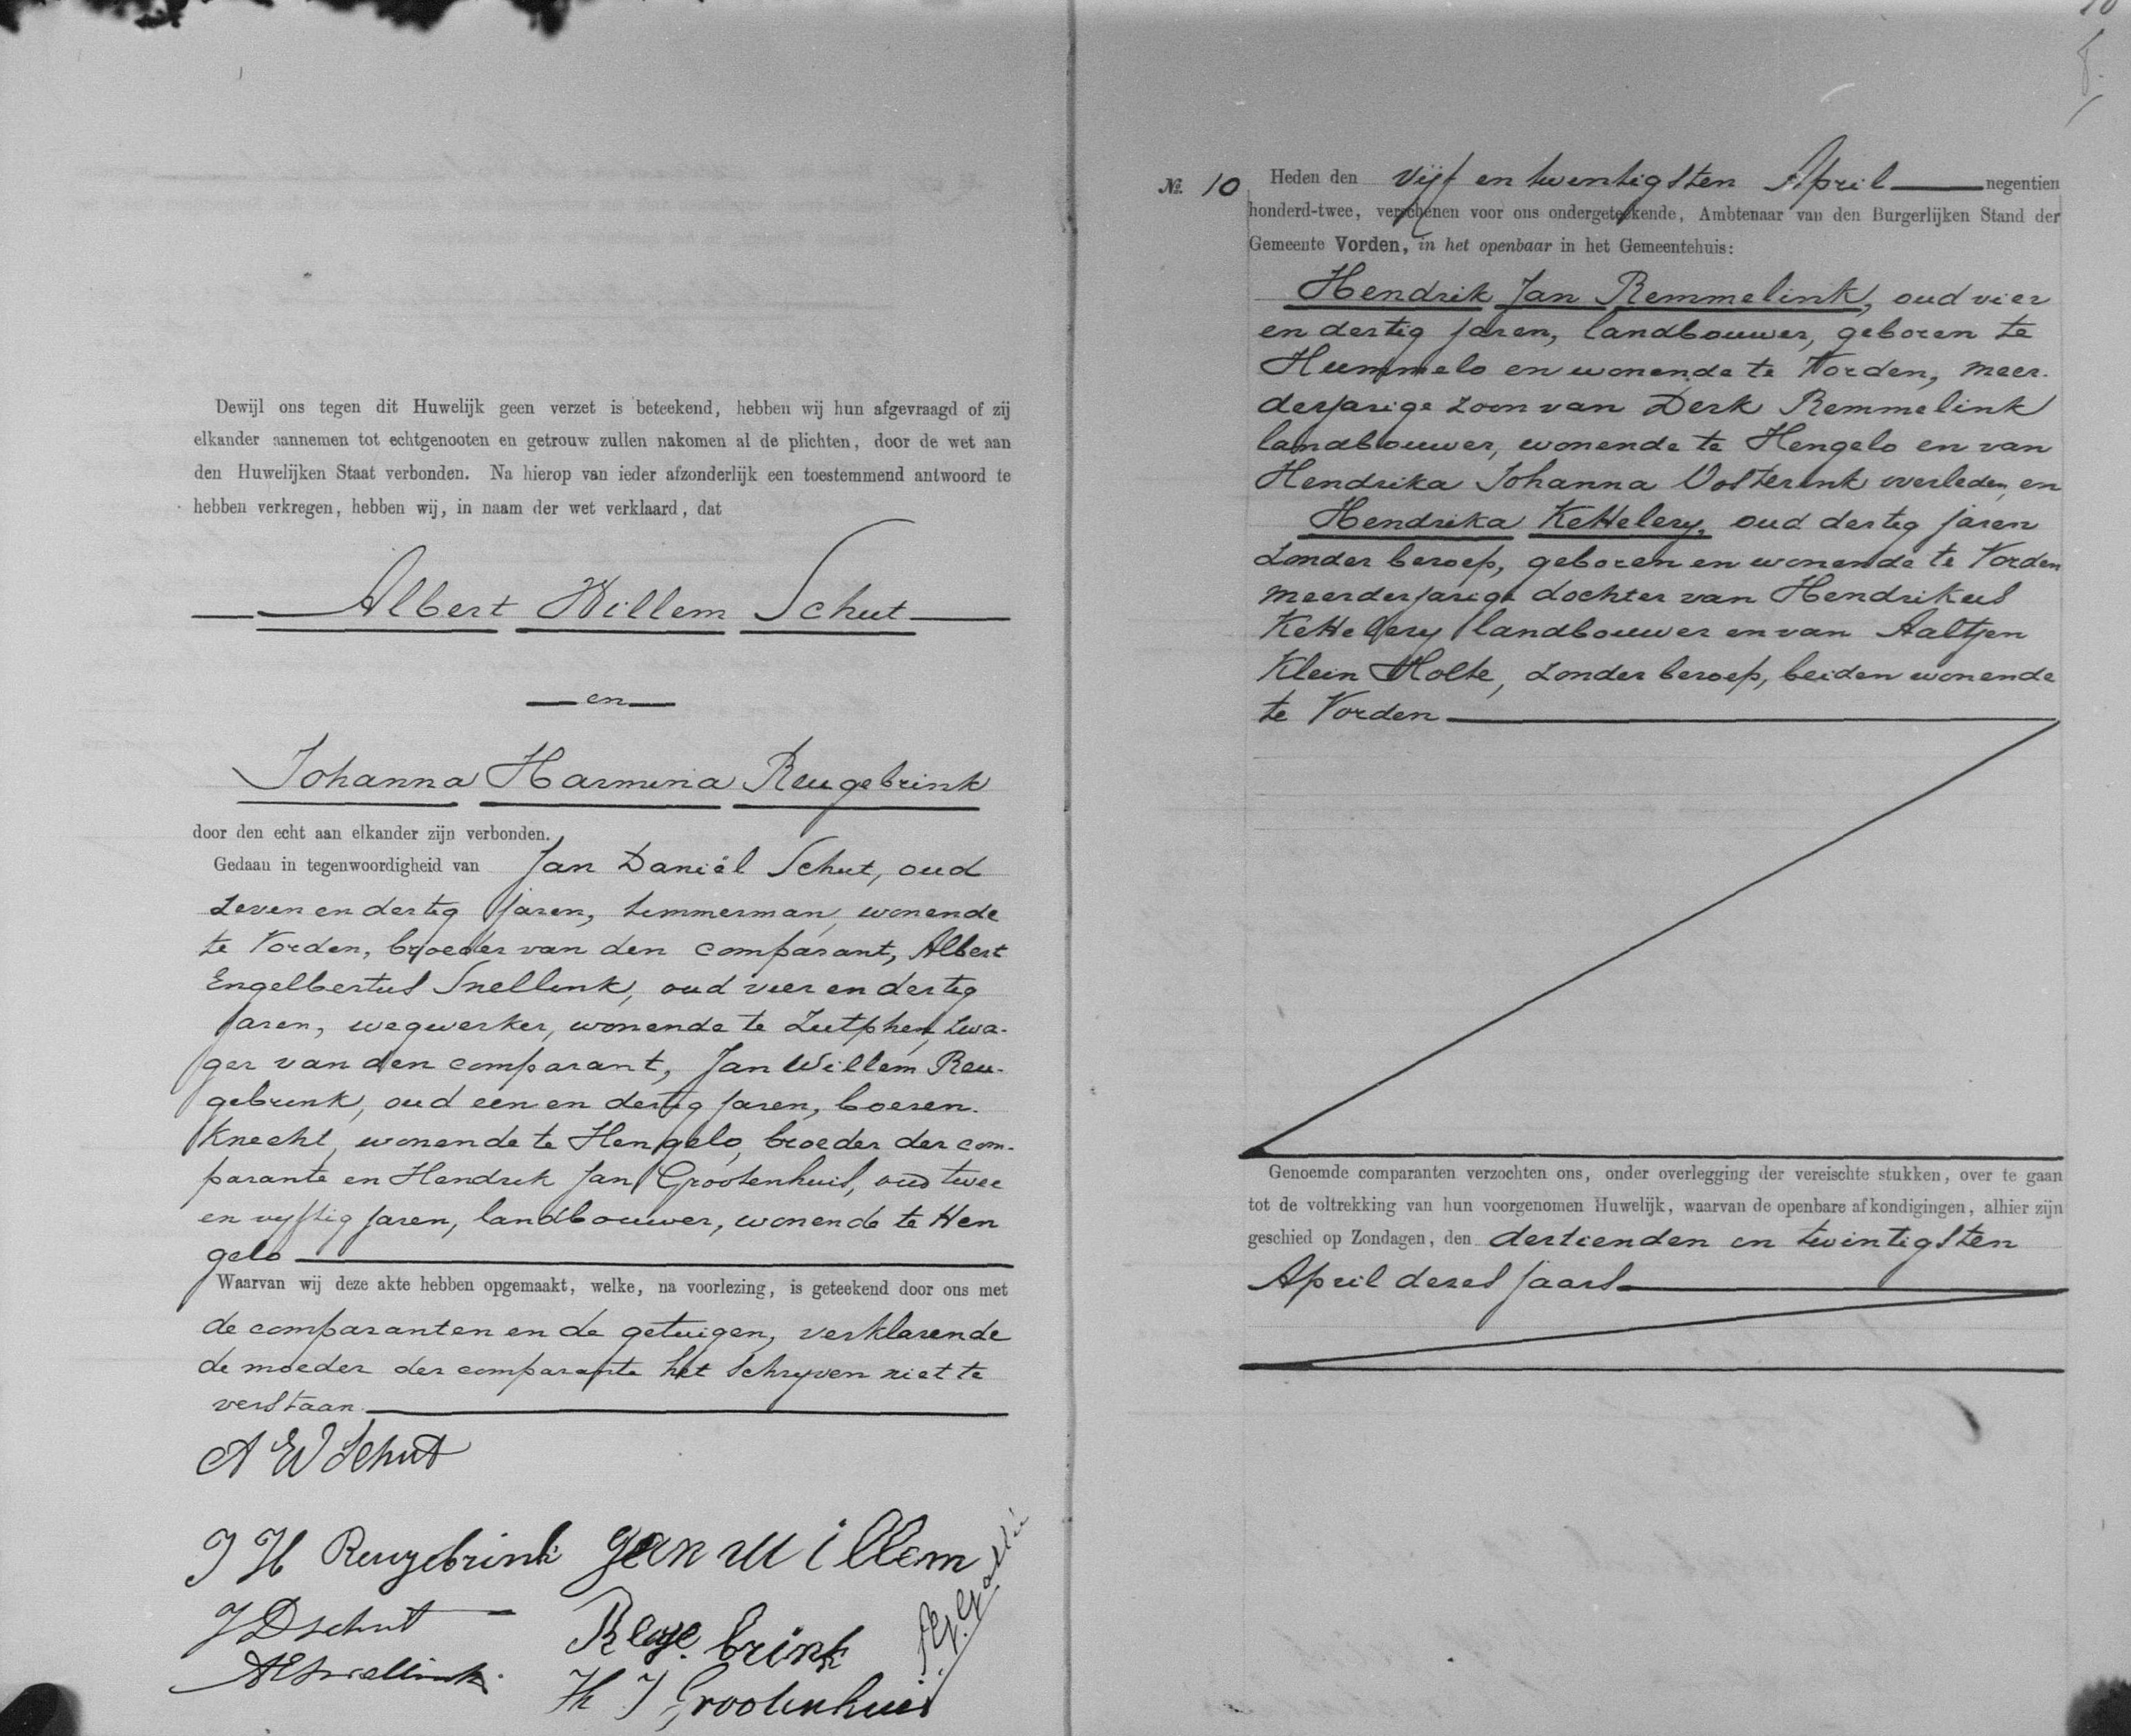 Dewijl ons tegen dit Huwelijk geen verzet is beteekend, hebben wij hun afgevraagd of zij
elkander aannemen tot echtgenooten en getrouw zullen nakomen al de plichten, door de wet aan
den Huwelijken Staat verbonden. Na hierop van ieder afzonderlijk een toestemmend antwoord te
hebben verkregen, hebben wij, in naam der wet verklaard, dat
Albert Willem Schut
en
Johanna Harmina Reugebrink
door den echt aan elkander zijn verbonden.
Gedaan in tegenwoordigheid van Jan Daniël Schut, oud
zeven en dertig jaren, timmerman, wonende
te Vorden, broeder van den comparant, Albert
Engelbertus Snellink, oud vier en dertig
jaren, wegwerker, wonende te Zutphen, zwa-
ger van den comparant, Jan Willem Reu-
gebrink, oud een en dertig jaren, boeren-
knecht, wonende te Hengelo, broeder der com-
parante en Hendrik Jan Grootenhuis, oud twee
en vyftig jaren, landbouwer, wonende te Hen
gelo
Waarvan wij deze akte hebben opgemaakt, welke, na voorlezing, is geteekend door ons met
de comparanten en de getuigen, verklarende
de moeder der comparante het schryven niet te
verstaan.
A W Schut
J H Reugebrink Jan Willem
J D Schut Reuge brink
A E Snellink
H J Grootenhuis
10
№. 10 Heden den vijf en twentigsten April negentien
honderd-twee, verschenen voor ons ondergeteekende, Ambtenaar van den Burgerlijken Stand der
Gemeente Vorden, in het openbaar in het Gemeentehuis:
Hendrik Jan Remmelink, oud vier
en dertig jaren, landbouwer, geboren te
Hummelo en wonende te Vorden, meer-
derjarige zoon van Derk Remmelink
landbouwer, wonende te Hengelo en van
Hendrika Johanna Vosterink overleden, en
Hendrika Kettelery, oud dertig jaren
zonder beroep, geboren en wonende te Vorden
meerderjarige dochter van Hendrikus
Kettelery landbouwer en van Aaltjen
Klein Holte, zonder beroep, beiden wonende
te Vorden
Genoemde comparanten verzochten ons, onder overlegging der vereischte stukken, over te gaan
tot de voltrekking van hun voorgenomen Huwelijk, waarvan de openbare afkondigingen, alhier zijn
geschied op Zondagen, den dertienden en twintigsten
April dezes jaars